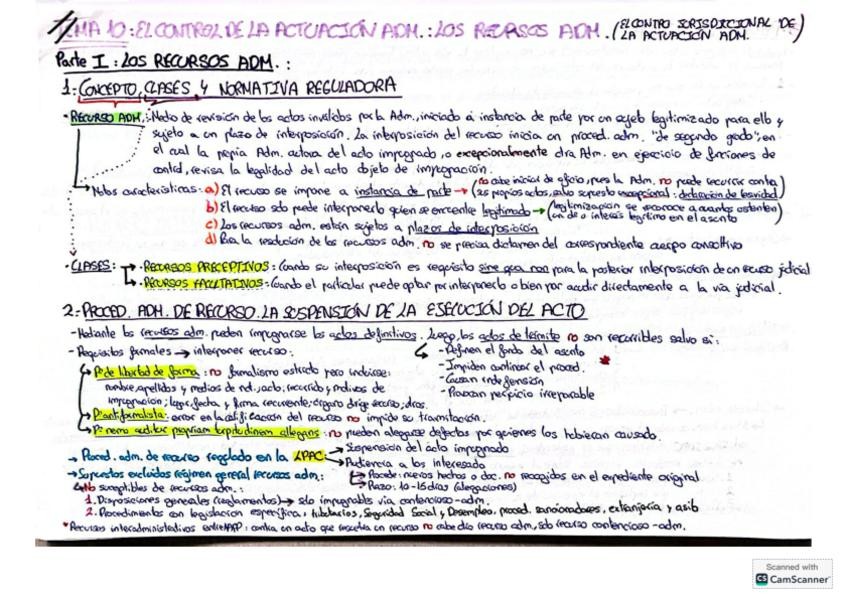 TEMA 10: EL CONTROL DE LA ACTUACIÓN ADM.: LOS RECURSOS ADM. (EL CONTRO JURISDICCIONAL DE LA ACTUACIÓN ADM.)
Parte I: LOS RECURSOS ADM.:
1: CONCEPTO, CLASES Y NORMATIVA REGULADORA
- RECURSO ADM.: Medio de revisión de los actos inválidos por la Adm., iniciado a instancia de parte por un sujeto legitimizado para ello y
sujeto a un plazo de interposición. La interposición del recurso inicia un proced. adm. "de segundo grado", en
el cual la propia Adm. autora del acto impugnado, o excepcionalmente otra Adm. en ejercicio de funciones de
control, revisa la legalidad del acto objeto de impugnación.
→ Notas características: a) El recurso se impone a instancia de parte → (no cabe iniciar de oficio, pues la Adm. no puede recurrir contra sus propios actos, salvo supuesto excepcional: declaración de lesividad)
b) El recurso solo puede interponerlo quien se encuentre legitimado → (legitimización se reconoce a cuantos ostenten un dº o interés legítimo en el asunto)
c) Los recursos adm. están sujetos a plazos de interposición
d) Para la resolución de los recursos adm. no se precisa dictamen del correspondiente cuerpo consultivo
- CLASES: → - RECURSOS PRECEPTIVOS: Cuando su interposición es requisito sine qua non para la posterior interposición de un recurso judicial
→ - RECURSOS FACULTATIVOS: Cuando el particular puede optar por interponerlo o bien por acudir directamente a la vía judicial.
2: PROCED. ADM. DE RECURSO. LA SUSPENSIÓN DE LA EJECUCIÓN DEL ACTO
- Mediante los recursos adm. pueden impugnarse los actos definitivos. Luego, los actos de trámite no son recurribles salvo si:
- Definen el fondo del asunto
- Impiden continuar el proced.
- Causan indefensión
- Provocan perjuicio irreparable
*
- Requisitos formales → interponer recurso:
→ Pº de libertad de forma: no formalismo estricto pero indicarse:
nombre, apellidos y medios de not.; acto recurrido y motivos de
impugnación; lugar, fecha y firma recurrente; órgano dirige recurso; otros.
→ Pº antiformalista: error en la calificación del recurso no impide su tramitación.
→ Pº nemo auditur propriam turpitudinem allegans: no pueden alegarse defectos por quienes los hubieran causado.
→ Proced. adm. de recurso regulado en la LPAC → Suspensión del acto impugnado
→ Audiencia a los interesado
→ Procede: nuevos hechos o doc. no recogidos en el expediente original
→ Plazo: 10-15 días (alegaciones)
→ Supuestos excluidos régimen general recursos adm.:
→ No susceptibles de recursos adm.:
1. Disposiciones generales (reglamentos) → solo impugnables vía contencioso-adm.
2. Procedimientos con legislación específica, tributarios, Seguridad Social y Desempleo, proced. sancionadores, extranjería y asilo
* Recursos interadministrativos entre AAPP: contra un acto que resuelva un recurso no cabe otro recurso adm., solo recurso contencioso-adm.
Scanned with
CS CamScanner